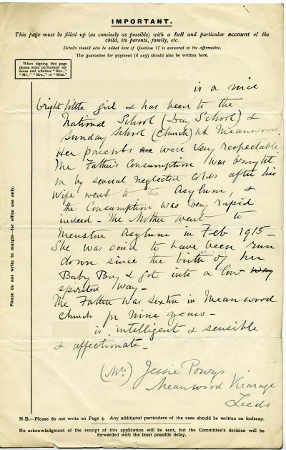 IMPORTANT.
This page must be filled up (as concisely as possible) with a full and particular account of the
child, its parents, family, etc.
Details should also be added here if Question 17 is answered in the affirmative.
The guarantee for payment (if any) should also be written here.
When signing this page
please state permanent ad-
dress and whether "Rev.,"
"Mr.," "Mrs.," or "Miss."
is a nice
bright little girl & has been to the
National School (Day School) &
Sunday School (Church) at Meanwood.
Her parents were very respectable
The Father's Consumption was brought
on by several neglected colds after his
wife went to the Asylum, &
the Consumption was very rapid
indeed - The Mother went to
Menston Asylum in Feb 1915 -
She was said to have been run
down since the birth of her
Baby Boy, & got into a low
spirited way -
The Father was Sexton in Meanwood
Church for nine years -
is intelligent & sensible
& affectionate -
(Mrs) Jessie Powys
Meanwood Vicarage
Leeds
Please do not write in margin—for office use only.
N.B.—Please do not write on Page 4. Any additional particulars of the case should be written on foolscap.
No acknowledgment of the receipt of this application will be sent, but the Committee's decision will be
forwarded with the least possible delay.